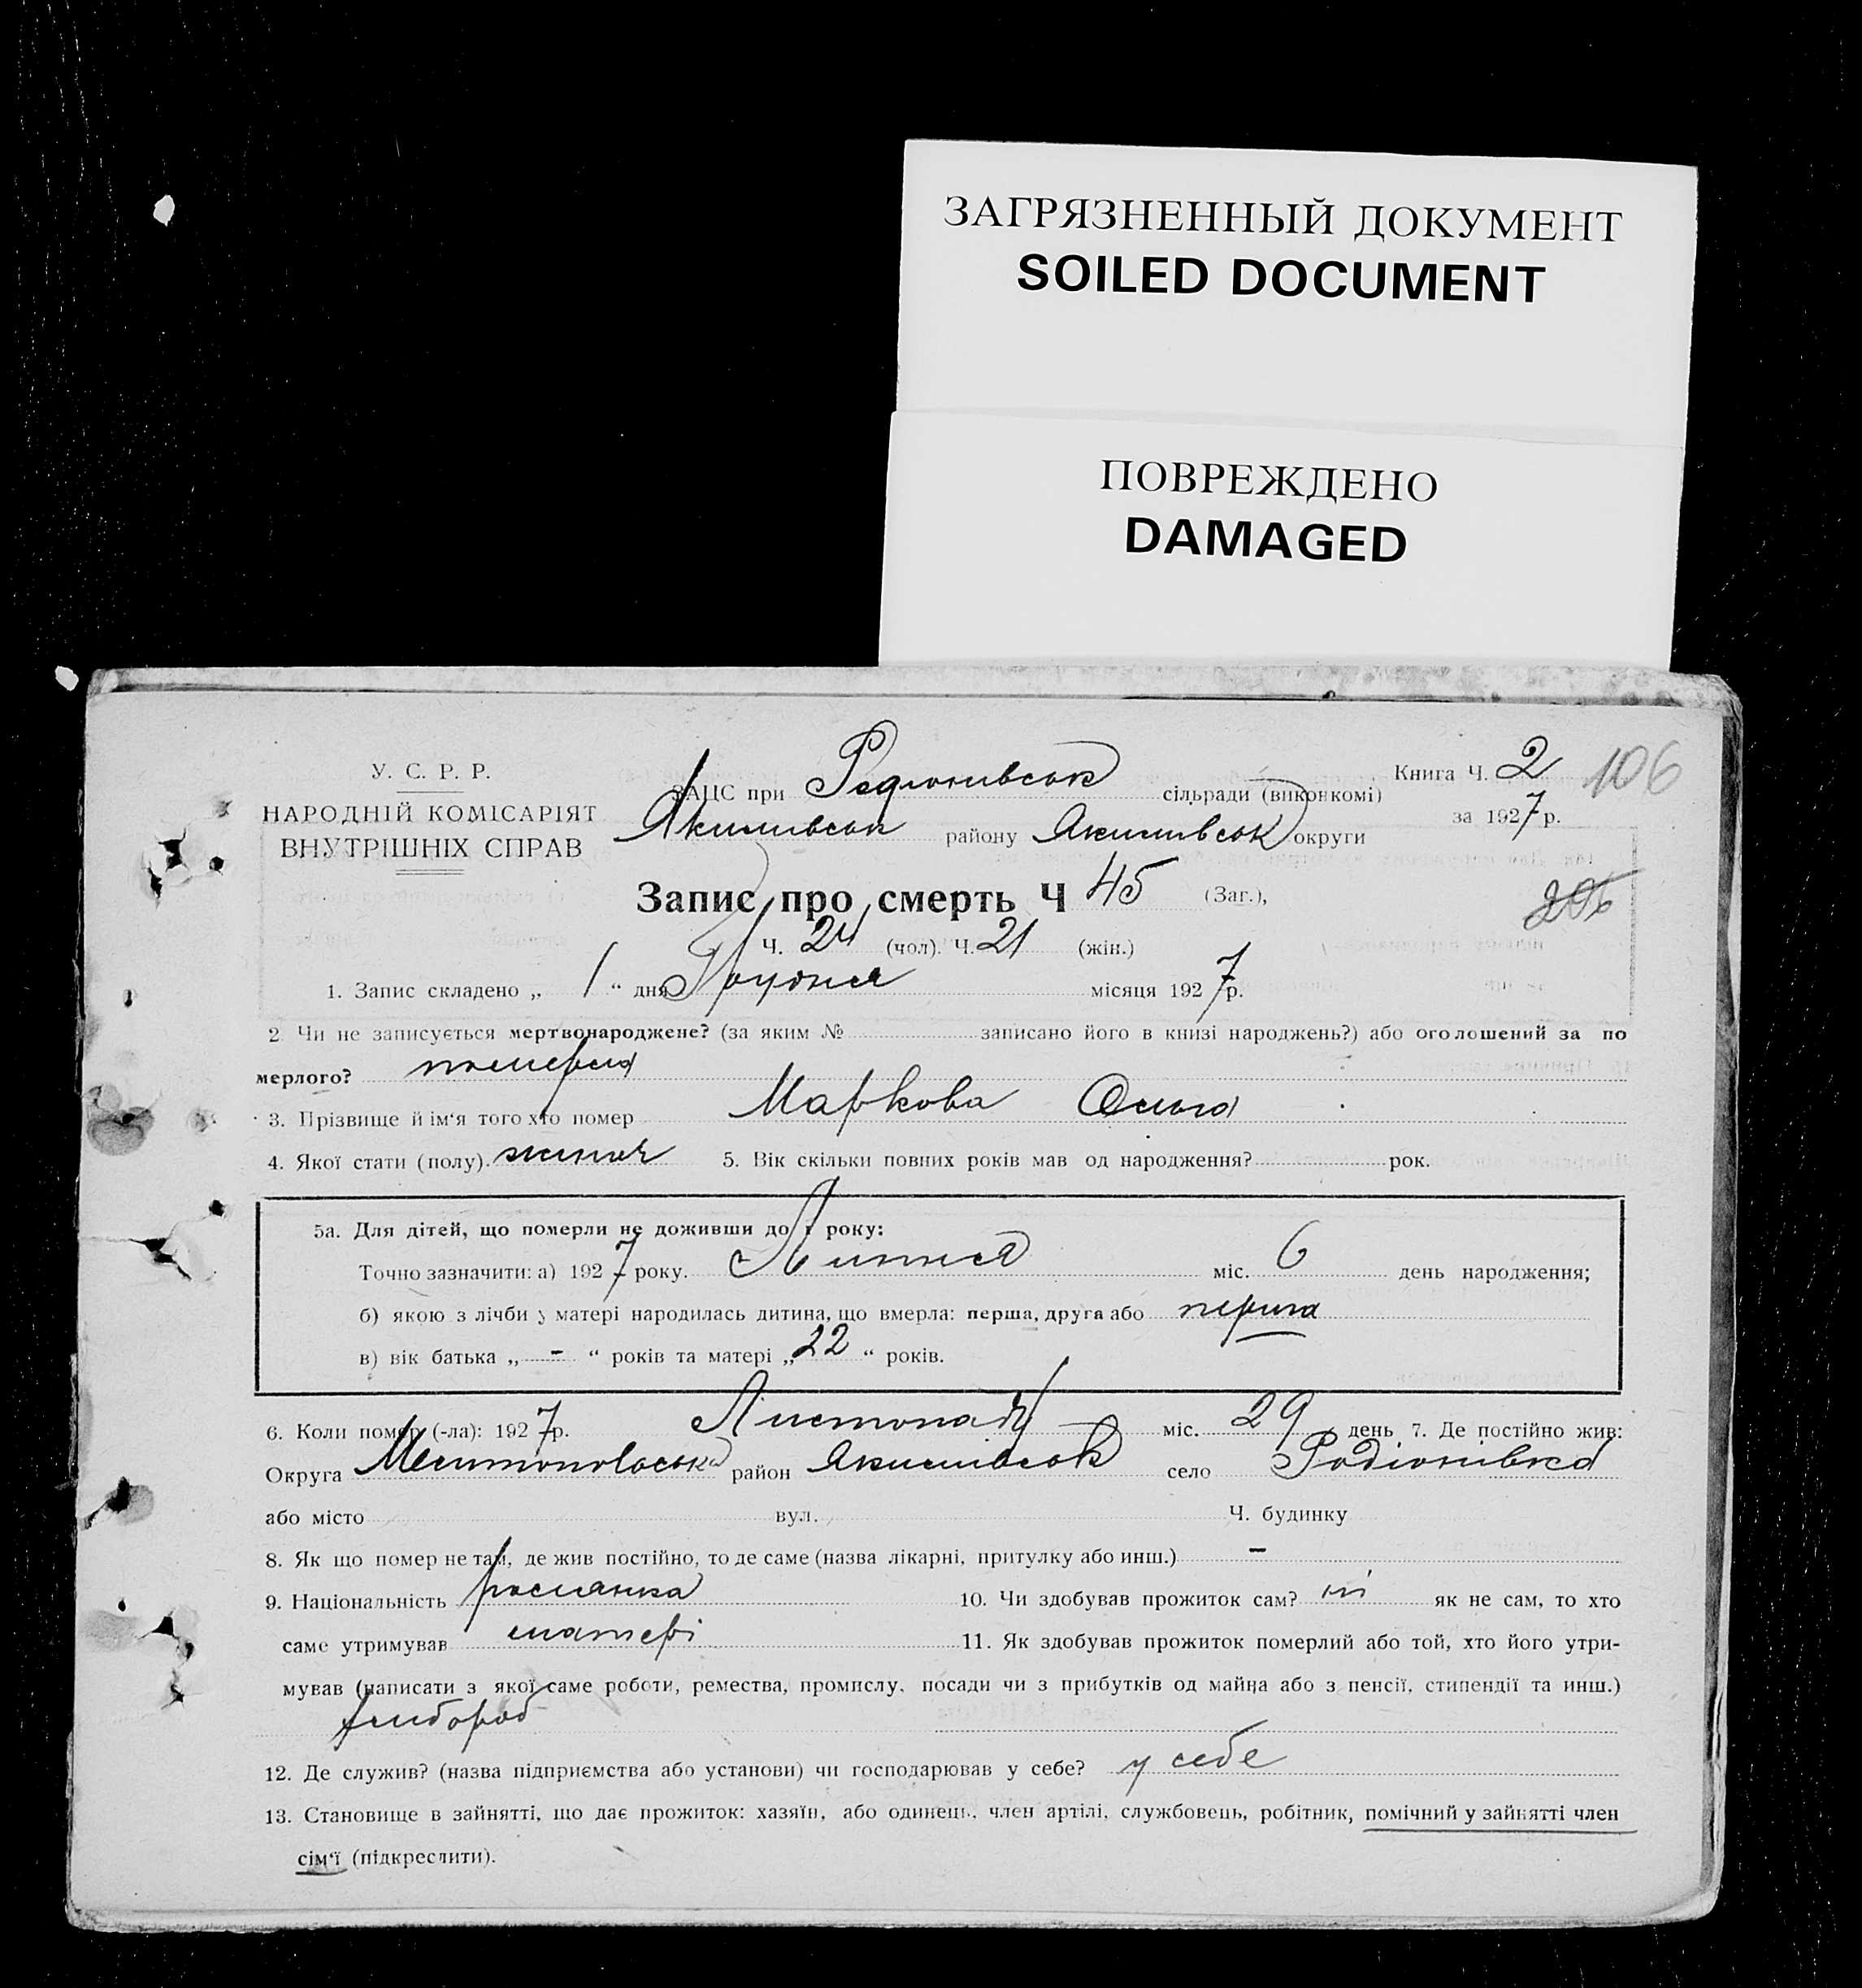 ЗАГРЯЗНЕННЫЙ ДОКУМЕНТ
SOILED DOCUMENT
ПОВРЕЖДЕНО
DAMAGED
У. С. Р. Р.
НАРОДНІЙ КОМІСАРІЯТ
ВНУТРІШНІХ СПРАВ
ЗАЦС при Родионивськ сільради (виконкомі)
Якимивськ району Якимивськ округи
Книга Ч. 2 106
за 1927 р.
Запис про смерть Ч 45 (Заг.),
206
Ч. 24 (чол). Ч. 21 (жін.)
1. Запис складено „ 1 “ дня Грудня місяця 1927 р.
2 Чи не записується мертвонароджене? (за яким № записано його в книзі народжень?) або оголошений за по
мерлого? померла
3. Прізвище й ім‘я того хто помер Маркова Ольга
4. Якої стати (полу). жиноч 5. Вік скільки повних років мав од народження? рок.
5а. Для дітей, що померли не доживши до 1 року:
Точно зазначити: а) 1927 року. Липня міс. 6 день народження;
б) якою з лічби у матері народилась дитина, що вмерла: перша, друга або перша
в) вік батька „ - “ років та матері „ 22 “ років.
6. Коли помер (-ла): 1927 р. Листопада міс. 29 день 7. Де постійно жив:
Округа Мелитопольська район Якимівськ село Родіонівка
або місто вул. Ч. будинку
8. Як що помер не там, де жив постійно, то де саме (назва лікарні, притулку або инш.) -
9. Національність росіянка 10. Чи здобував прожиток сам? ні як не сам, то хто
саме утримував матері 11. Як здобував прожиток померлий або той, хто його утри-
мував (написати з якої саме роботи, ремества, промислу, посади чи з прибутків од майна або з пенсії, стипендії та инш.)
хлибороб
12. Де служив? (назва підприємства або установи) чи господарював у себе? у себе
13. Становище в зайнятті, що дає прожиток: хазяїн, або одинець, член артілі, службовець, робітник, помічний у зайнятті член
сім‘ї (підкреслити).